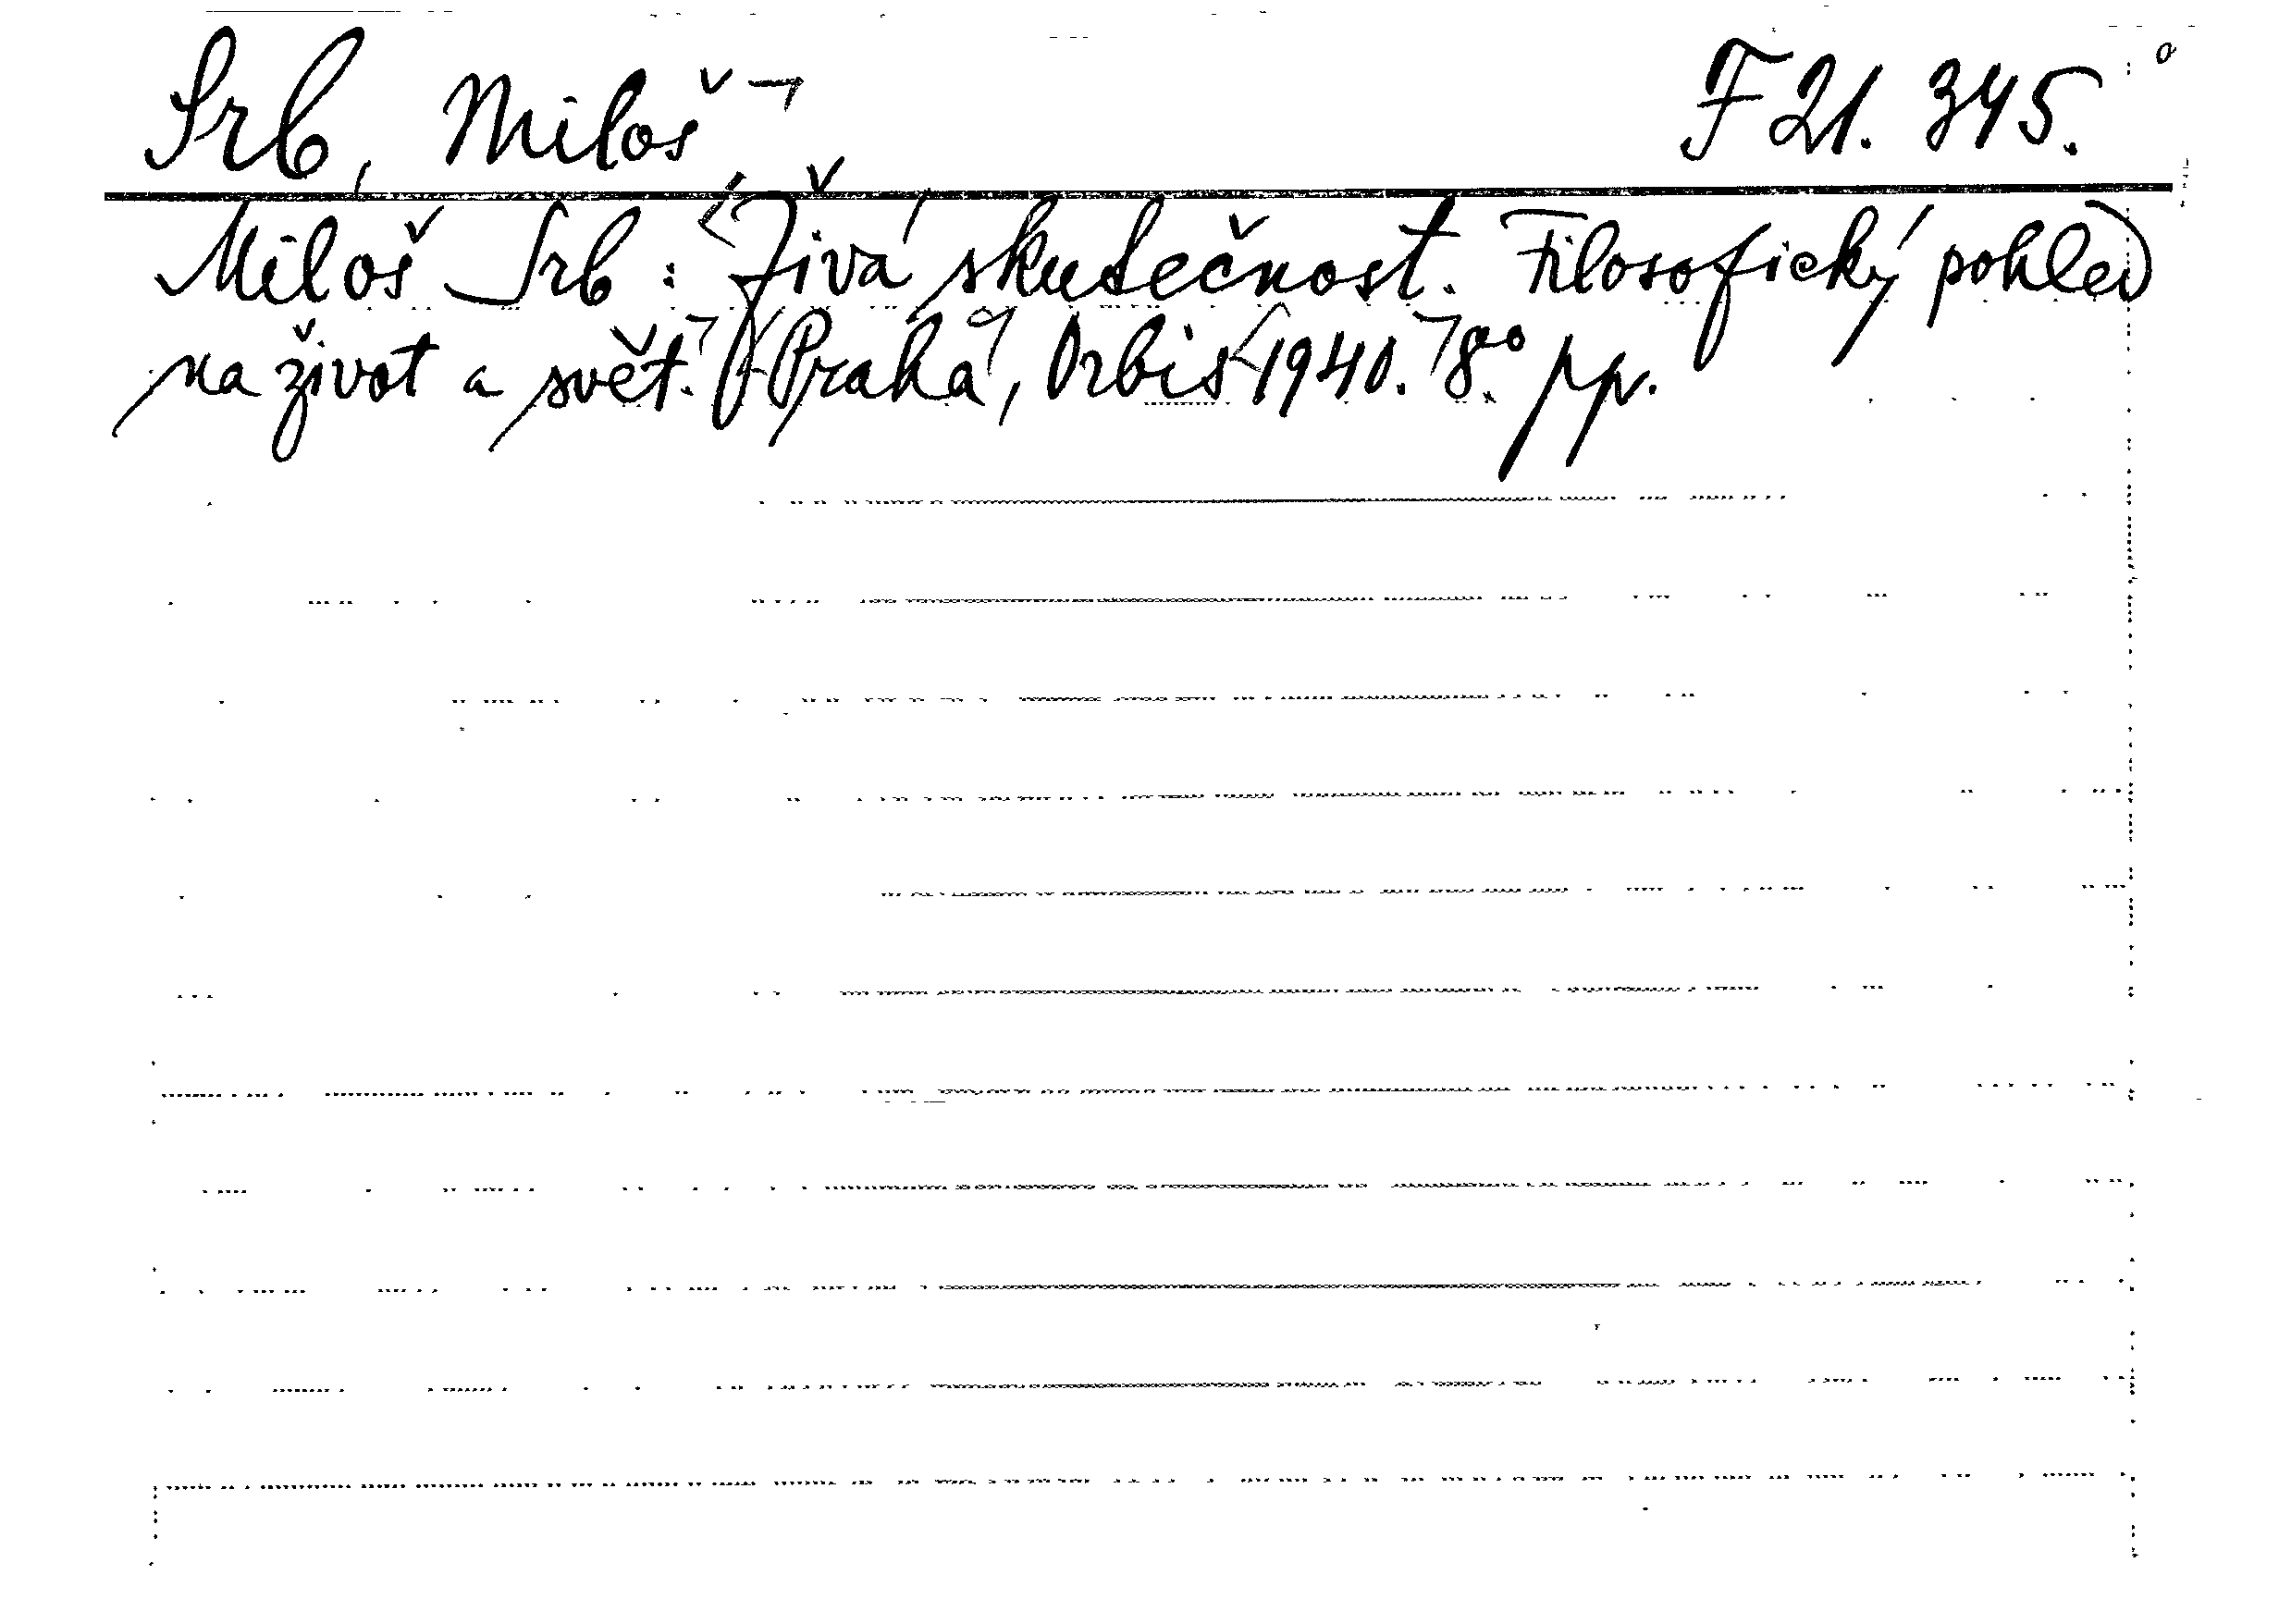 Srb, Miloš F 21. 345.
Miloš Srb: Živá skutečnost. Filosofický pohled
na život a svět. Praha, Orbis 1940. 8.° pp.